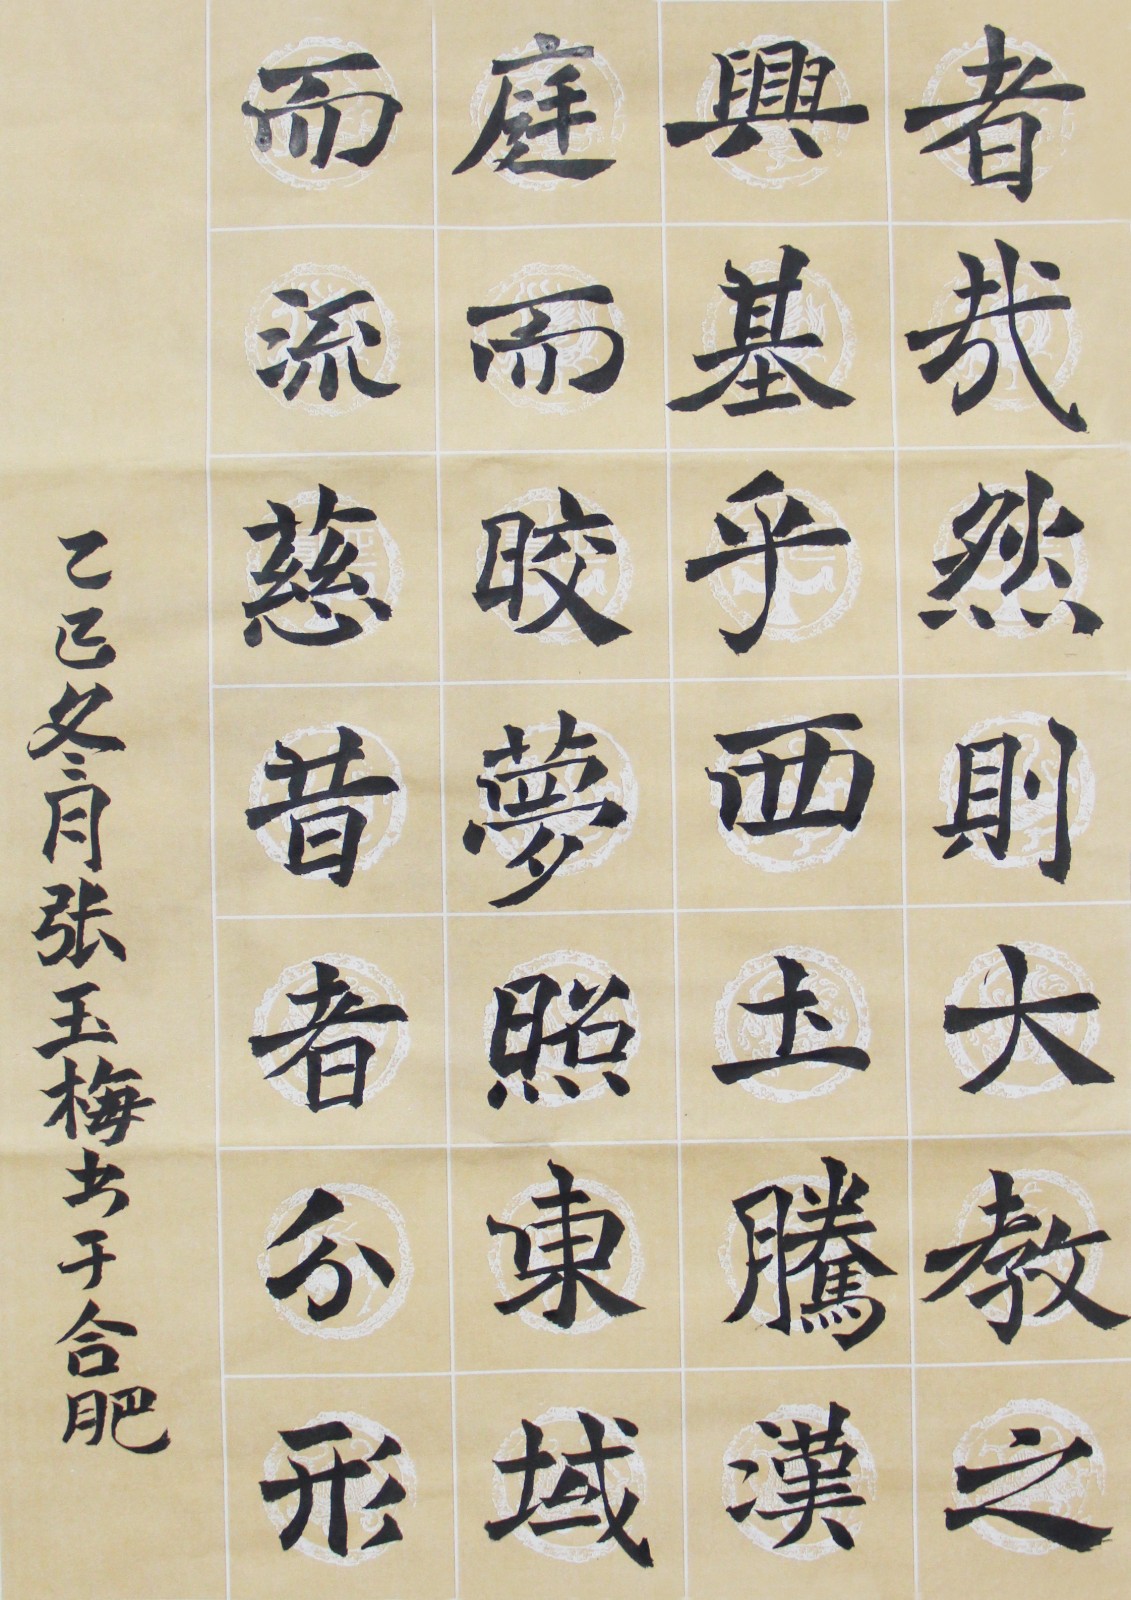 者哉然則大教之
興基乎西土騰漢
庭而晈夢照東域
而流慈昔者分形
乙巳冬月张玉梅书于合肥